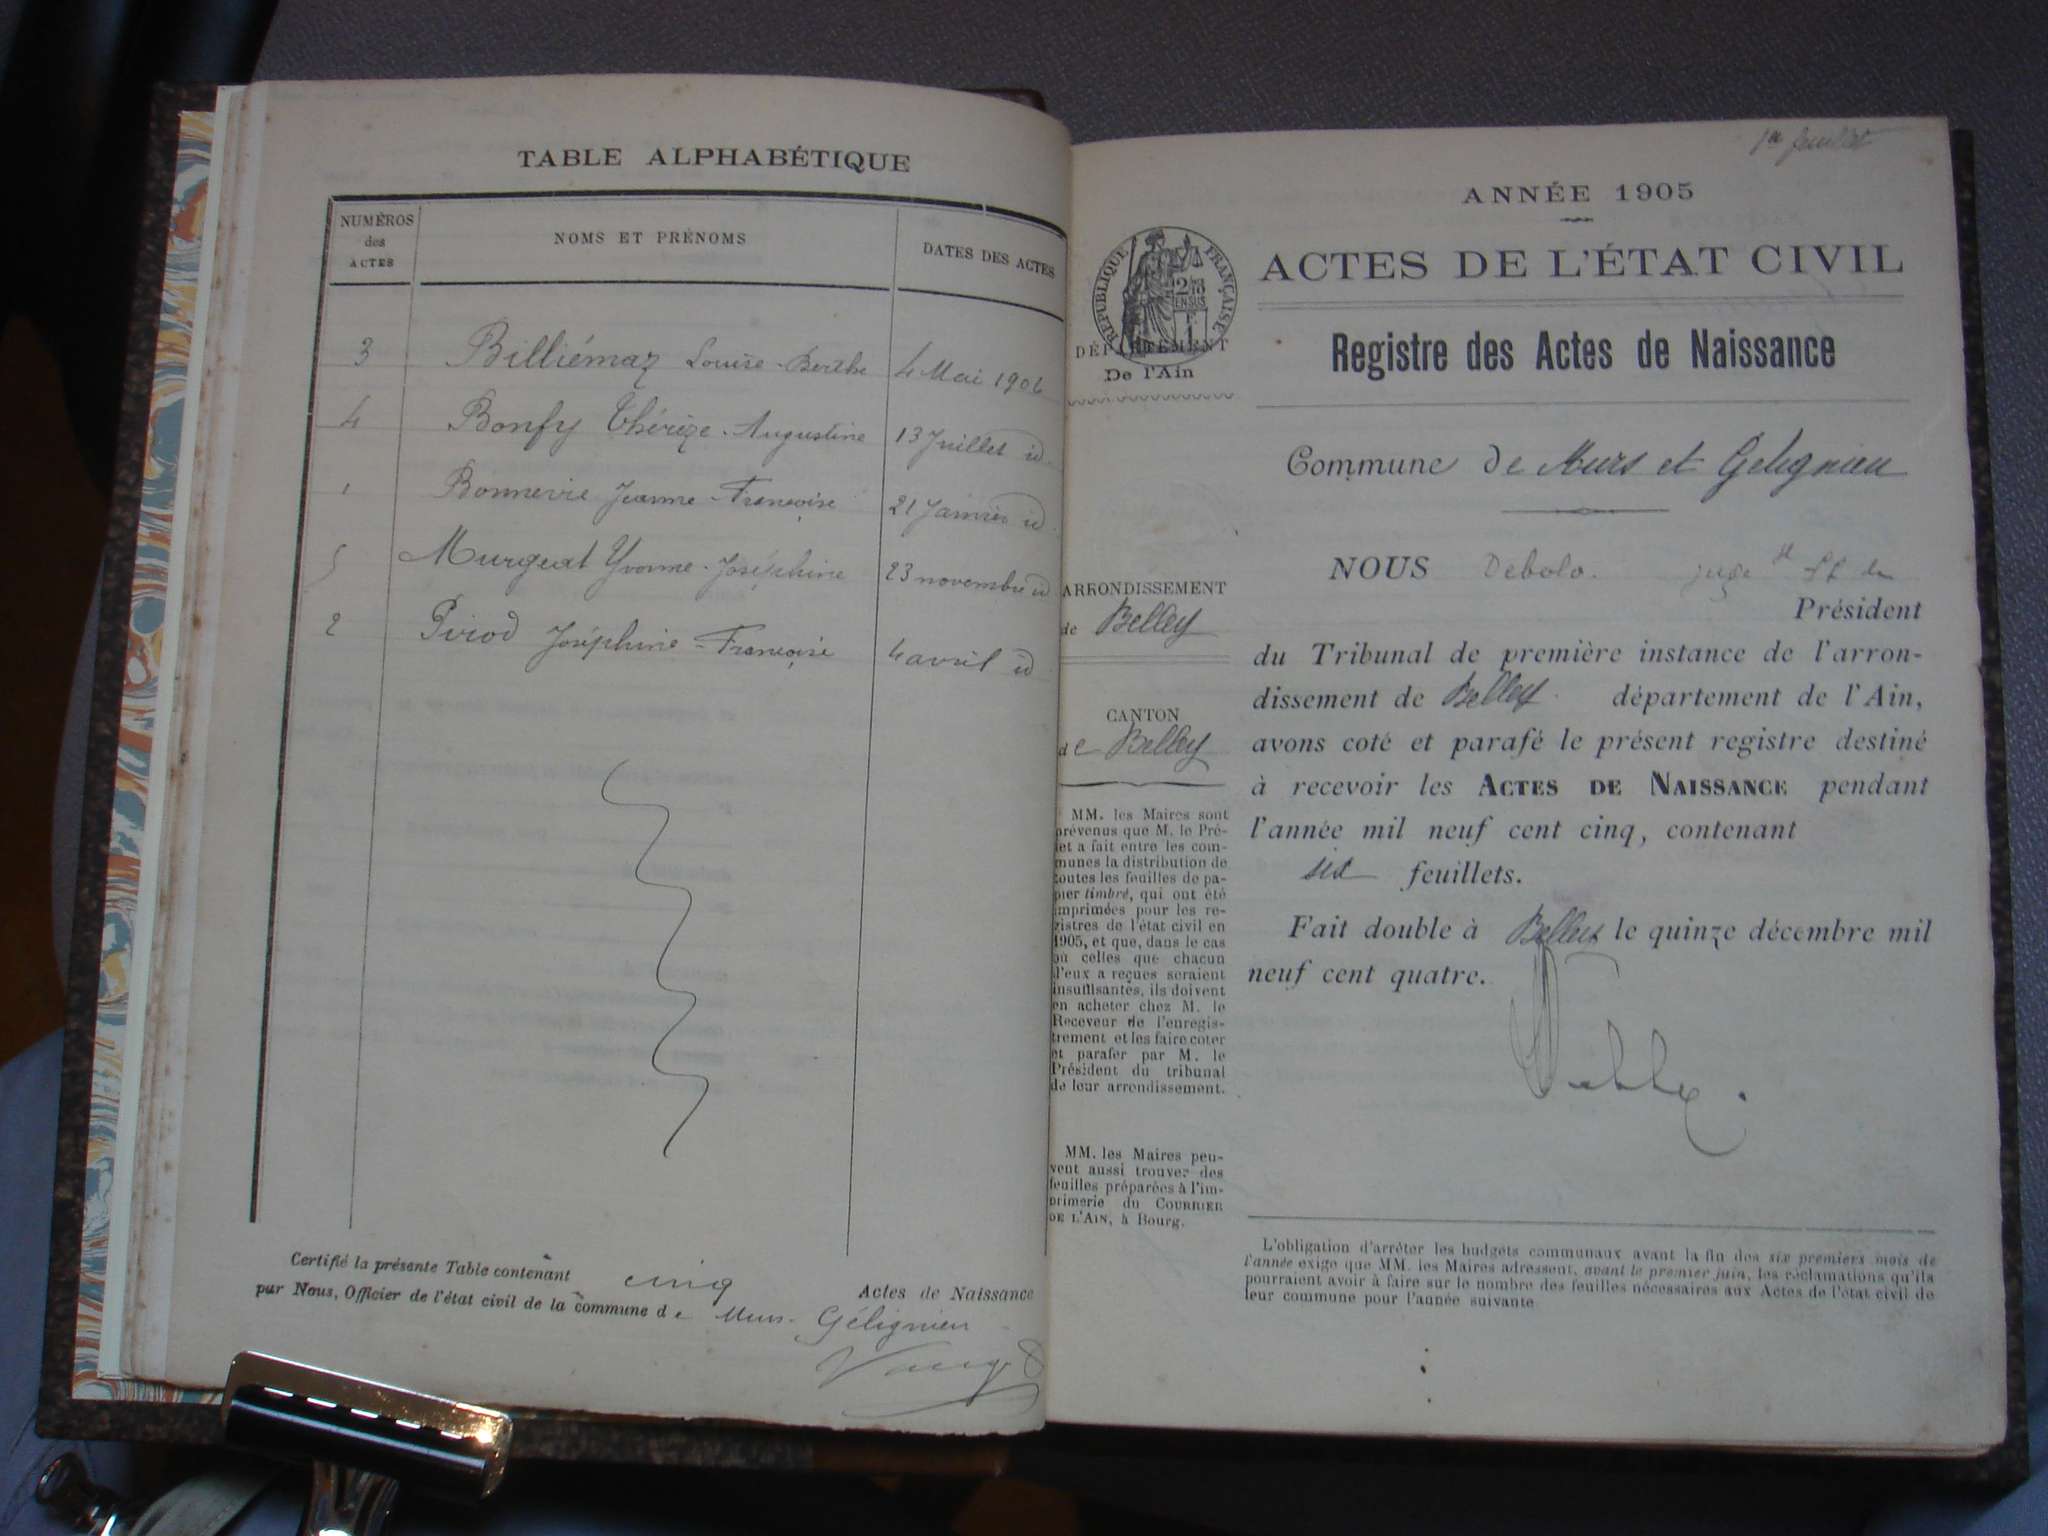 TABLE ALPHABÉTIQUE
NUMÉROS des ACTES
NOMS ET PRÉNOMS
DATES DES ACTES
3 Billiémaz Louise-Berthe 4 Mai
4 Bonfy Thérèze-Augustine 13 Juillet id
1 Bonnevie Jeanne-Françoise 21 Janvier id
5 Murgeat Yvonne-Joséphine 23 novembre id
2 Pirod Joséphine-Françoise 4 avril id
Certifié la présente Table contenant cinq Actes de Naissance
par Nous, Officier de l'état civil de la commune de Murs-Gélignieu
1er feuillet
ANNÉE 1905
RÉPUBLIQUE FRANÇAISE
DÉPARTEMENT
De l'Ain
ACTES DE L'ÉTAT CIVIL
Registre des Actes de Naissance
Commune de Murs et Gelignieu
ARRONDISSEMENT
de Belley
CANTON
de Belley
MM. les Maires sont
prévenus que M. le Pré-
fet a fait entre les com-
munes la distribution de
toutes les feuilles de pa-
pier timbré, qui ont été
imprimées pour les re-
gistres de l'état civil en
1905, et que, dans le cas
où celles que chacun
d'eux a reçues seraient
insuffisantes, ils doivent
en acheter chez M. le
Receveur de l'enregis-
trement et les faire coter
et parafer par M. le
Président du tribunal
de leur arrondissement.
MM. les Maires peu-
vent aussi trouver des
feuilles préparées à l'im-
primerie du COURRIER
DE L'AIN, à Bourg.
NOUS juge
Président
du Tribunal de première instance de l'arron-
dissement de Belley département de l'Ain,
avons coté et parafé le présent registre destiné
à recevoir les ACTES DE NAISSANCE pendant
l'année mil neuf cent cinq, contenant
six feuillets.
Fait double à Belley le quinze décembre mil
neuf cent quatre.
L'obligation d'arrêter les budgets communaux avant la fin des six premiers mois de
l'année exige que MM. les Maires adressent, avant le premier juin, les réclamations qu'ils
pourraient avoir à faire sur le nombre des feuilles nécessaires aux Actes de l'état civil de
leur commune pour l'année suivante